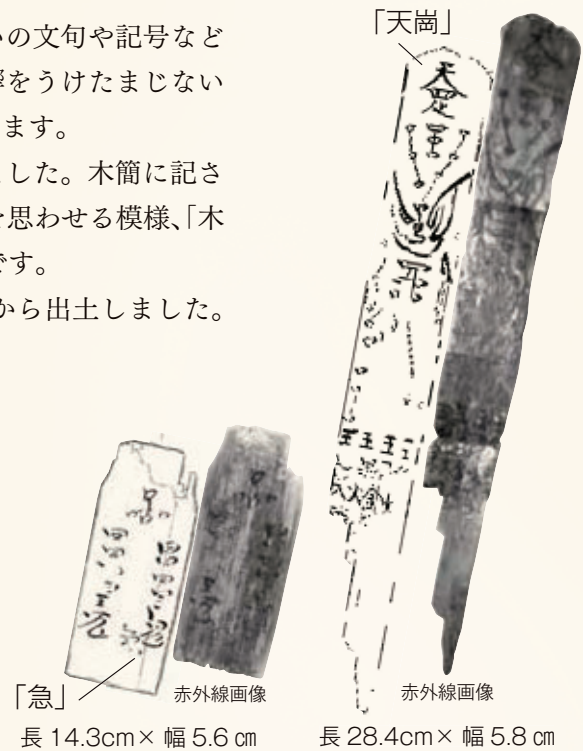 いの文句や記号など
響をうけたまじない
ます。
した。木簡に記さ
を思わせる模様、「木
です。
から出土しました。
「天崗」
「急」
赤外線画像
赤外線画像
長 14.3cm× 幅 5.6 ㎝
長 28.4cm× 幅 5.8 ㎝